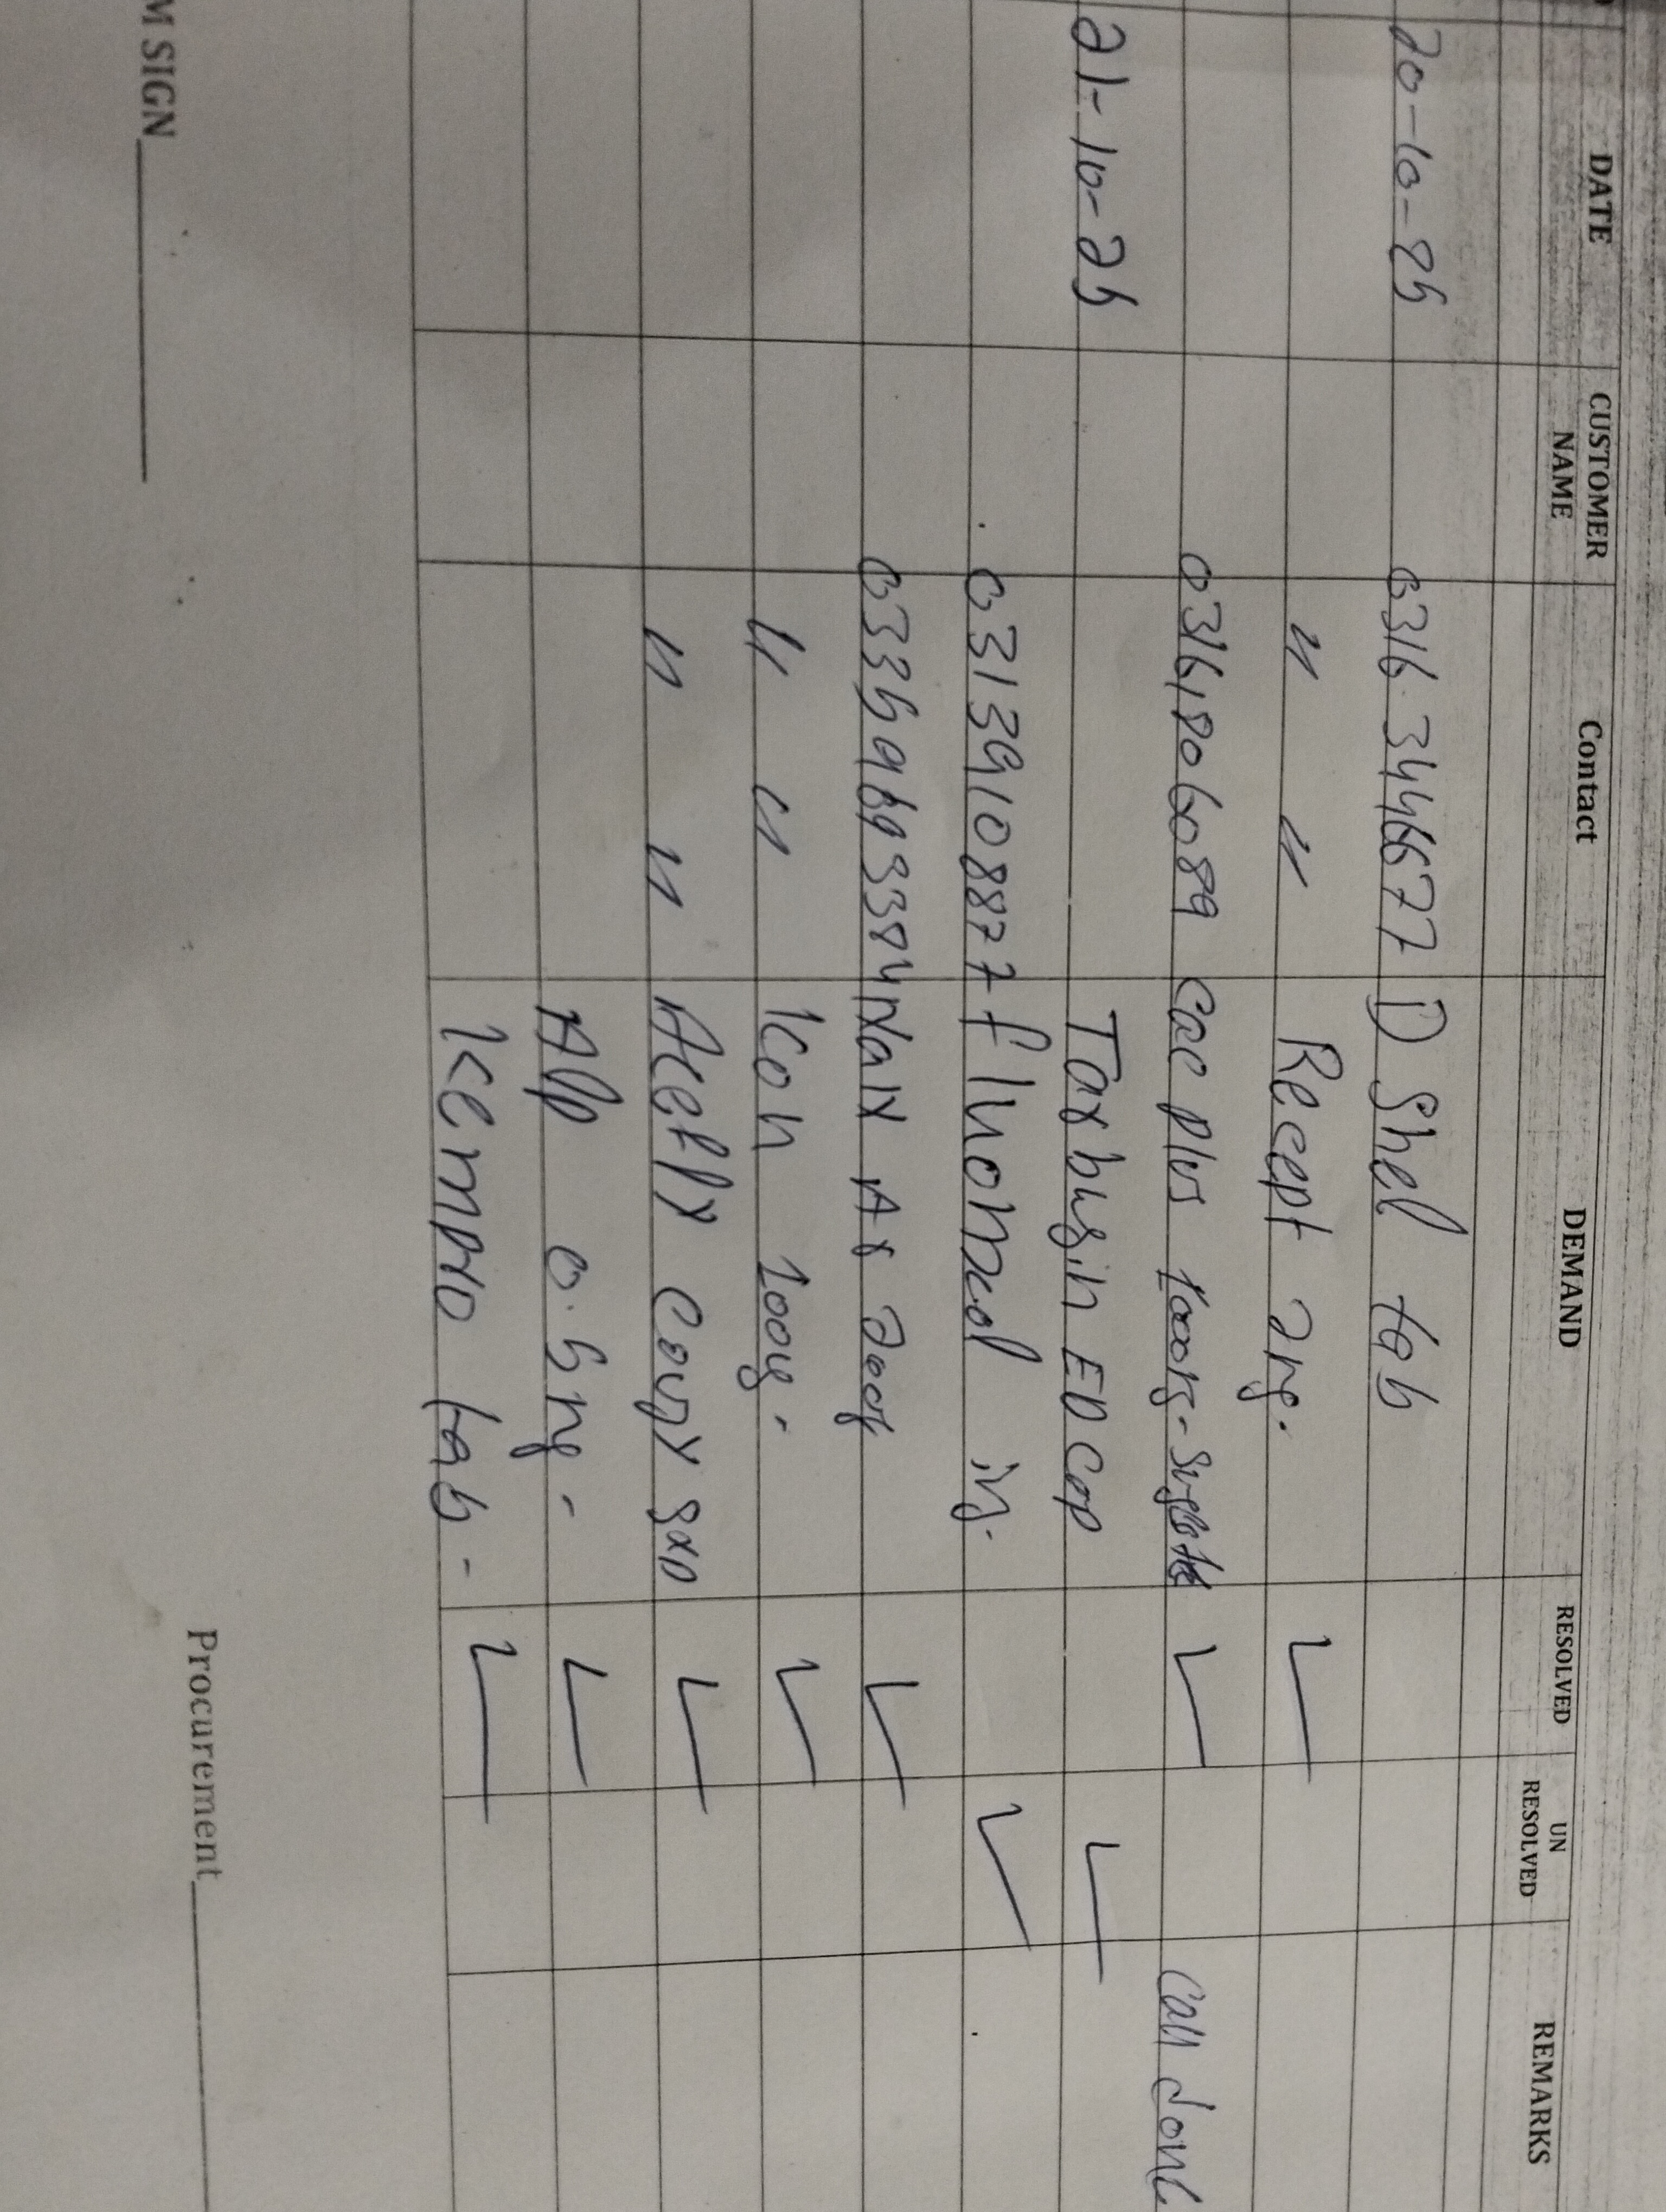 DATE CUSTOMER NAME Contact DEMAND RESOLVED UN RESOLVED REMARKS
20-10-25 0316 3446677 D Shel tab
" " Recept 2mg.
03161806089 Cac plus 1000mg-
✓ Call done
21-10-25 Tax busin ED Cap
03139108877 fluomed inj.
03359699384
" " 100g.
" "
Alp 0.5mg-
Kempro tab-
M SIGN Procurement